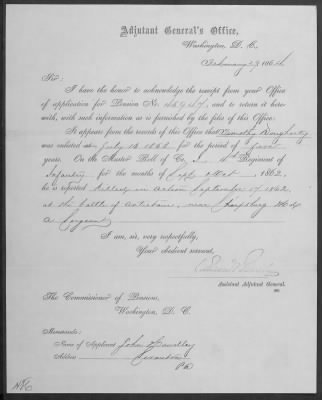 Adjutant General's Office,
Washington, D. C.,
February 29, 1864
Sir:
I have the honor to acknowledge the receipt from your Office
of application for Pension No. and to return it here-
with, with such information as is furnished by the files of this Office.
It appears from the records of this Office that Timothy Dougherty
was enlisted at July 1862 for the period of
years. On the Muster Roll of Co. Regiment of
Infantry for the months of Sept & Oct, 1862,
he is reported killed in Action September 17 1862,
at the battle of Antietam, near Sharpsburg Md
A Sergeant
I am, sir, very respectfully,
Your obedient servant,
Assistant Adjutant General.
The Commissioner of Pensions,
Washington, D. C.
Memoranda:
Name of Applicant John
Address Scranton
Pa